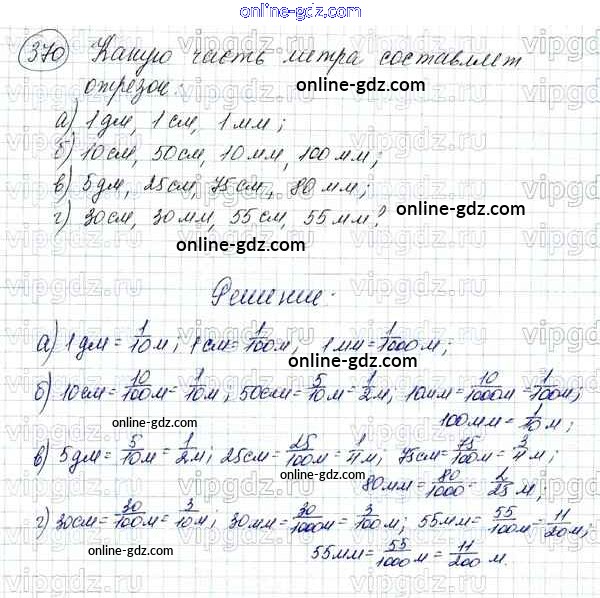 online-gdz.com
370 Какую часть метра составляет
отрезок:
online-gdz.com
а) 1 дм, 1 см, 1 мм;
б) 10 см, 50 см, 10 мм, 100 мм;
в) 5 дм, 25 см, 75 см, 80 мм;
г) 30 см, 30 мм, 55 см, 55 мм?
online-gdz.com
online-gdz.com
Решение.
а) 1 дм = 1/10 м; 1 см = 1/100 м, 1 мм = 1/1000 м;
online-gdz.com
б) 10 см = 10/100 м = 1/10 м; 50 см = 5/10 м = 1/2 м; 10 мм = 10/1000 м = 1/100 м;
100 мм = 1/10 м;
online-gdz.com
в) 5 дм = 5/10 м = 1/2 м; 25 см = 25/100 м = 1/4 м; 75 см = 75/100 м = 3/4 м;
80 мм = 80/1000 = 2/25 м;
online-gdz.com
г) 30 см = 30/100 м = 3/10 м; 30 мм = 30/1000 м = 3/100 м; 55 мм = 55/100 м = 11/20 м;
online-gdz.com
55 мм = 55/1000 м = 11/200 м.
online-gdz.com